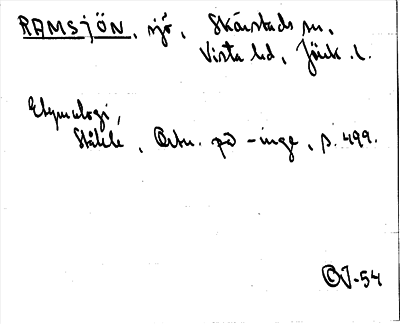 RAMSJÖN, sjö, Skärstads sn,
Vista hd, Jönk. l.
Etymologi,
Ståhle, Ortn. på -inge, s. 499.
OJ-54